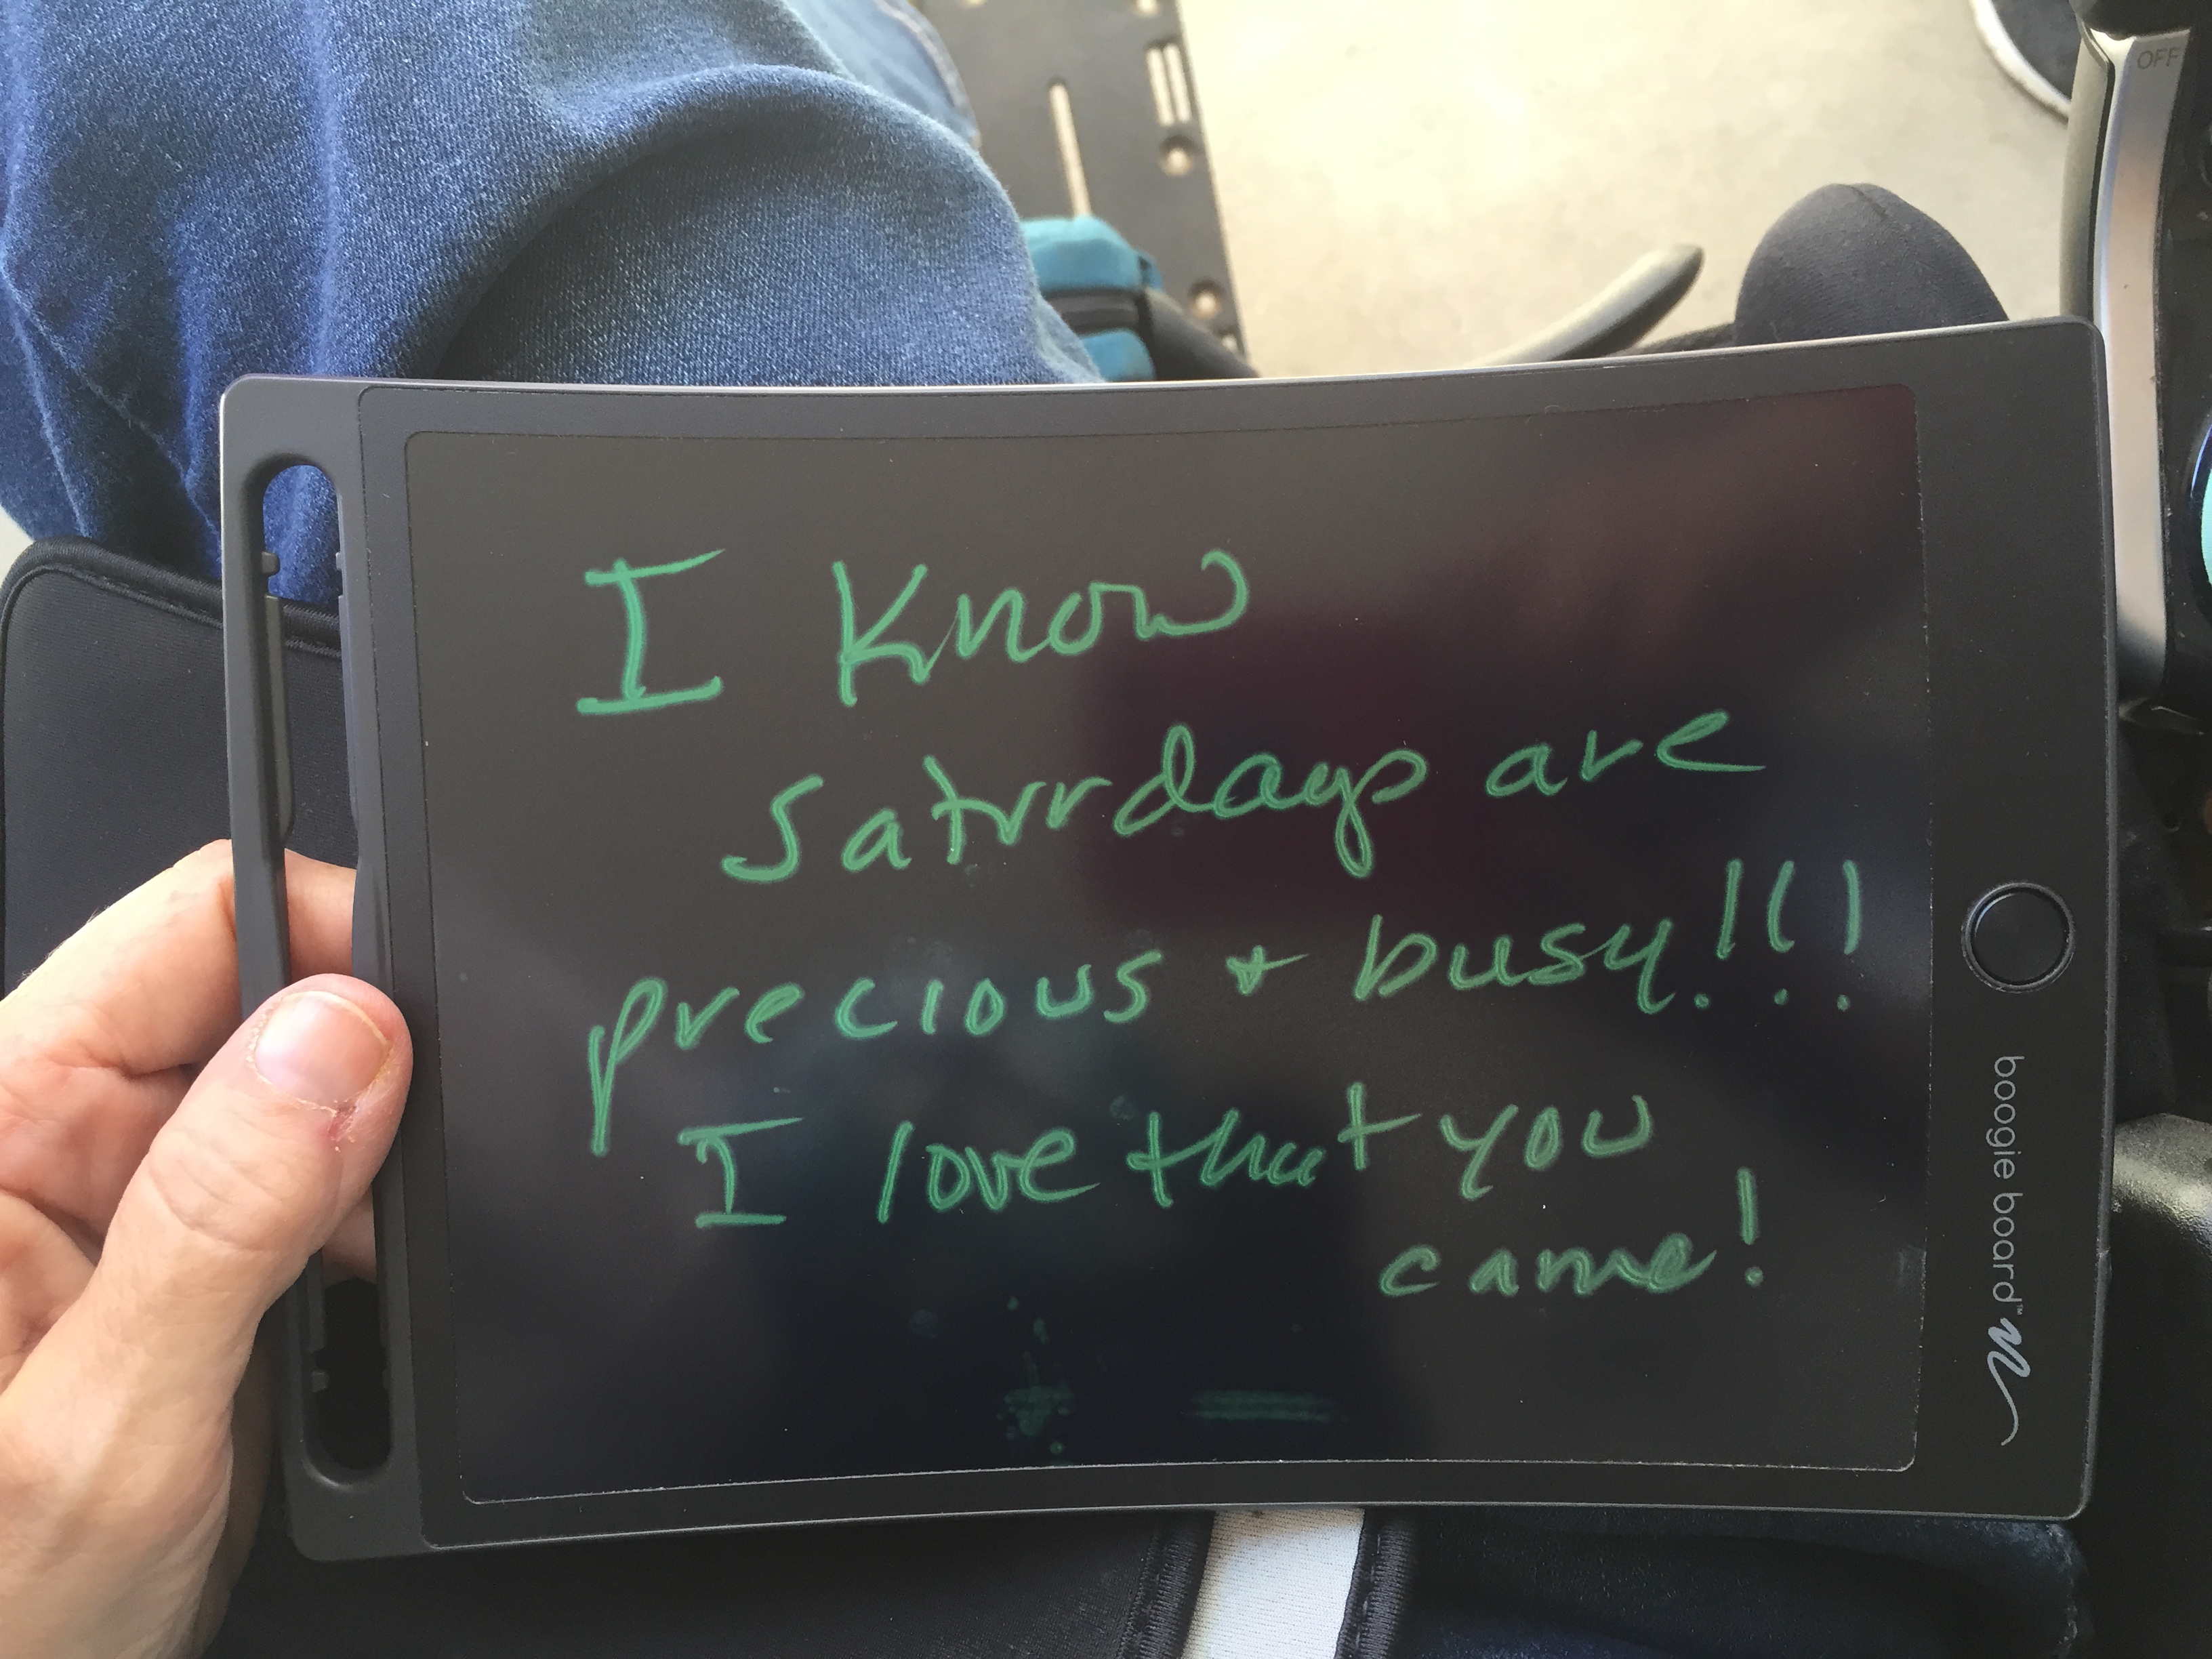 I Know
Saturdays are
precious + busy!!!
I love that you
came!
boogie board™
OFF